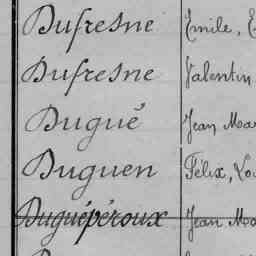 Dufresne Emile, E
Dufresne Valentin
Dugué Jean Ma
Duguen Félix, Lo
Duguépéroux Jean Ma